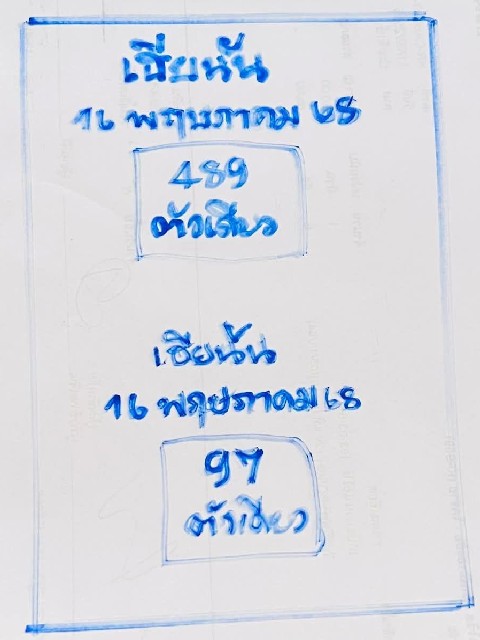 เซียนัน
16 พฤษภาคม 68
489
ตัวเดียว
เซียนัน
16 พฤษภาคม 68
97
ตัวเดียว